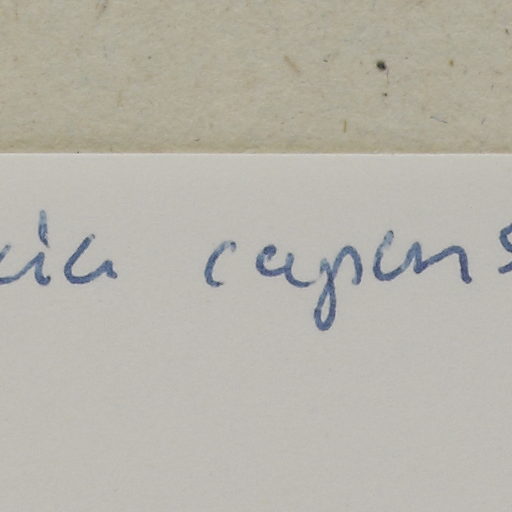 ia capens